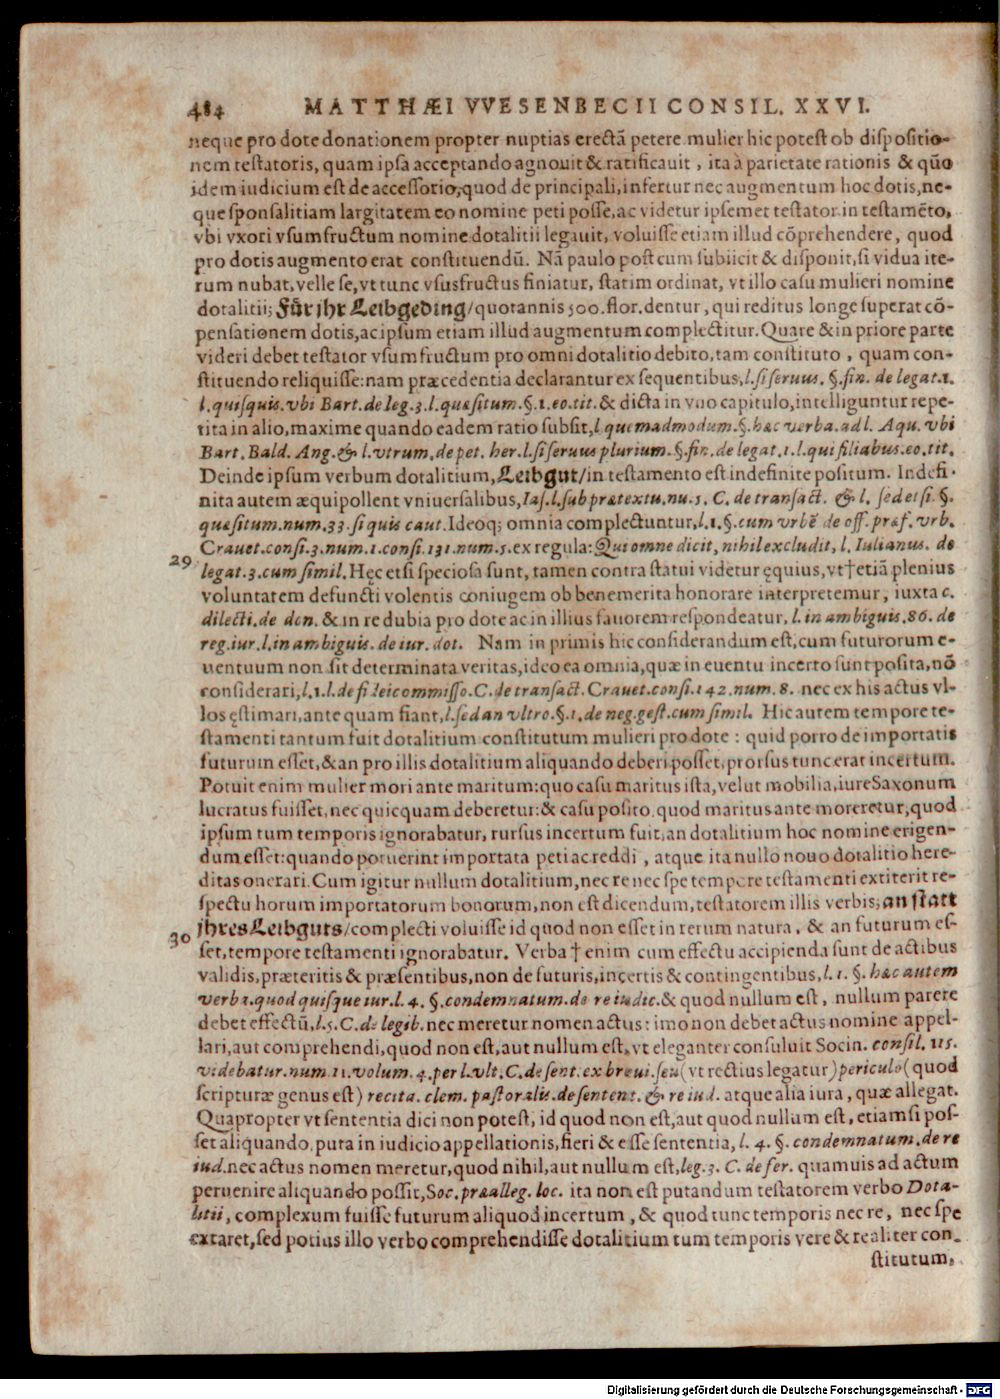 484 MATTHÆI VVESENBECII CONSIL. XXVI.
neque pro dote donationem propter nuptias erectā petere mulier hic potest ob dispositio-
nem testatoris, quam ipsa acceptando agnouit & ratificauit, ita à parietate rationis & qūo
idem iudicium est de accessorio, quod de principali, infertur nec augmentum hoc dotis, ne-
que sponsalitiam largitatem eo nomine peti posse, ac videtur ipsemet testator in testamēto,
vbi vxori vsumfructum nomine dotalitii legauit, voluisse etiam illud cōprehendere, quod
pro dotis augmento erat constituendū. Nā paulo post cum subiicit & disponit, si vidua ite-
rum nubat, velle se, vt tunc vsusfructus finiatur, statim ordinat, vt illo casu mulieri nomine
dotalitii; Für ihr Leibgeding/ quotannis 500. flor. dentur, qui reditus longe superat cō-
pensationem dotis, ac ipsum etiam illud augmentum complectitur. Quare & in priore parte
videri debet testator vsumfructum pro omni dotalitio debito, tam constituto, quam con-
stituendo reliquisse: nam præcedentia declarantur ex sequentibus, l. si seruus. §. fin. de legat. 1.
l. quisquis. vbi Bart. de leg. 3. l. quæsitum. §. 1. eo. tit. & dicta in vno capitulo, intelliguntur repe-
tita in alio, maxime quando eadem ratio subsit, l. quemadmodum. §. hæc verba. ad l. Aqu. vbi
Bart. Bald. Ang. & l. vtrum. de pet. her. l. si seruus plurium. §. fin. de legat. 1. l. qui filiabus. eo. tit.
Deinde ipsum verbum dotalitium, Leibgut/ in testamento est indefinite positum. Indefi-
nita autem æquipollent vniuersalibus, Ias. l. sub prætextu. nu. 5. C. de transact. & l. sed et si. §.
quæsitum. num. 33. si quis caut. Ideoq; omnia complectuntur, l. 1. §. cum vrbē de off. præf. vrb.
Crauet. consi. 3. num. 1. consi. 131. num. 5. ex regula: Qui omne dicit, nihil excludit, l. Iulianus. de
29 legat. 3. cum simil. Hęc etsi speciosa sunt, tamen contra statui videtur ęquius, vt † etiā plenius
voluntatem defuncti volentis coniugem ob benemerita honorare interpretemur, iuxta c.
dilecti. de don. & in re dubia pro dote ac in illius fauorem respondeatur, l. in ambiguis. 86. de
reg. iur. l. in ambiguis. de iur. dot. Nam in primis hic considerandum est, cum futurorum e-
uentuum non sit determinata veritas, ideo ea omnia, quæ in euentu incerto sunt posita, nō
considerari, l. 1. l. de fideicommisso. C. de transact. Crauet. consi. 142. num. 8. nec ex his actus vl-
los ęstimari, ante quam fiant, l. sed an vltro. §. 1. de neg. gest. cum simil. Hic autem tempore te-
stamenti tantum fuit dotalitium constitutum mulieri pro dote: quid porro de importatis
futurum esset, & an pro illis dotalitium aliquando deberi posset, prorsus tunc erat incertum.
Potuit enim mulier mori ante maritum: quo casu maritus ista, velut mobilia, iure Saxonum
lucratus fuisset, nec quicquam deberetur: & casu posito, quod maritus ante moreretur, quod
ipsum tum temporis ignorabatur, rursus incertum fuit, an dotalitium hoc nomine erigen-
dum esset: quando potuerint importata peti ac reddi, atque ita nullo nouo dotalitio here-
ditas onerari. Cum igitur nullum dotalitium, nec re nec spe tempore testamenti extiterit re-
spectu horum importatorum bonorum, non est dicendum, testatorem illis verbis; an statt
ihres Leibguts/ complecti voluisse id quod non esset in rerum natura, & an futurum es-
30 set, tempore testamenti ignorabatur. Verba † enim cum effectu accipienda sunt de actibus
validis, præteritis & præsentibus, non de futuris, incertis & contingentibus, l. 1. §. hæc autem
verba. quod quisque iur. l. 4. §. condemnatum. de re iudic. & quod nullum est, nullum parere
debet effectū, l. 5. C. de legib. nec meretur nomen actus: imo non debet actus nomine appel-
lari, aut comprehendi, quod non est, aut nullum est, vt eleganter consuluit Socin. consil. 115.
videbatur. num. 11. volum. 4. per l. vlt. C. de sent. ex breui. seu (vt rectius legatur) periculo (quod
scripturæ genus est) recita. clem. pastoralis. de sentent. & re iud. atque alia iura, quæ allegat.
Quapropter vt sententia dici non potest, id quod non est, aut quod nullum est, etiamsi pos-
set aliquando, puta in iudicio appellationis, fieri & esse sententia, l. 4. §. condemnatum. de re
iud. nec actus nomen meretur, quod nihil, aut nullum est, leg. 3. C. de fer. quamuis ad actum
peruenire aliquando possit, Soc. præalleg. loc. ita non est putandum testatorem verbo Dota-
litii, complexum fuisse futurum aliquod incertum, & quod tunc temporis nec re, nec spe
extaret, sed potius illo verbo comprehendisse dotalitium tum temporis vere & realiter con-
stitutum,
Digitalisierung gefördert durch die Deutsche Forschungsgemeinschaft - DFG